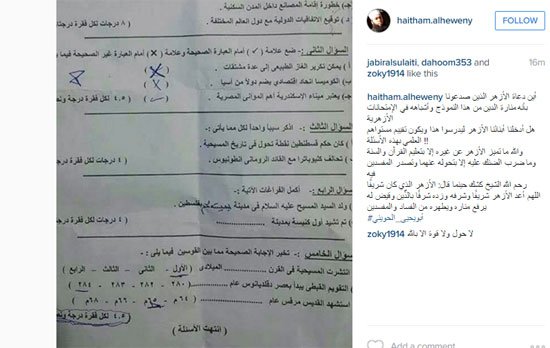 جـ) خطورة إقامة المصانع داخل المدن السكنية .
د) توقيع الاتفاقيات الدولية مع دول العالم المختلفة .
( ٨ درجات لكل فقرة
السؤال الثاني :- ضع علامة ( ✓ ) أمام العبارة الصحيحة وعلامة ( × ) أمام العبارة غير الصحيحة فيما
أ) يمكن تكرير الغاز الطبيعي إلى عدة مشتقات
ب) الكوميسا اتحاد اقتصادي يضم دولاً من آسيا .
جـ) يعتبر ميناء الإسكندرية أهم الموانئ المصرية .
( ٤.٥ لكل فقرة درجة
السؤال الثالث :- اذكر سبباً واحداً لكل مما يأتي:-
أ) كان حكم قسطنطين نقطة تحول في تاريخ المسيحية .
ب) تحالف كليوباترا مع القائد الروماني أنطونيوس .
( ٤ درجات لكل فقرة
السؤال الرابع :- أكمل الفراغات الآتية :-
أ) ولد السيد المسيح عليه السلام في مدينة بفلسطين .
ب) تم تشييد أول كنيسة بمدينة
( ٤ درجات لكل فقرة
السؤال الخامس :- تخير الإجابة الصحيحة مما بين القوسين فيما يلى :-
انتشرت المسيحية في القرن الميلادى ( الأول - الثاني - الثالث - الرابع )
التقويم القبطي يبدأ بعصر دقلديانوس عام ( ٢٨٠ - ٢٨٢ - ٢٨٣ - ٢٨٤ )
استشهد القديس مرقس عام ( ٦٤م - ٦٥م - ٦٦م - ٦٨م )
٤.٥ لكل فقرة درجة
( انتهت الأسئلة )
haitham.alheweny
FOLLOW
jabiralsulaiti, dahoom353 and
zoky1914 like this
16m
haitham.alheweny
أين دعاة الأزهر الذين صدعونا
بأنه منارة الدين من هذا النموذج وأشباهه في الإمتحانات
الأزهرية
هل أدخلنا أبنائنا الأزهر ليدرسوا هذا ويكون تقييم مستواهم
العلمي بهذه الأسئلة !!
والله ما تميز الأزهر عن غيره إلا بتعليم القرآن والسنة
وما ضرب الضنك عليه إلا بتحوله عنهما وتصدر المفسدين
فيه
رحم الله الشيخ كشك حينما قال: الأزهر الذي كان شريفًا
اللهم أعد الأزهر شريفًا وشرفه وزده شرفًا بالدين وقيض له
من يرفع مناره ويطهره من الفساد والمفسدين
#أبويحيى_الحويني
zoky1914 لا حول ولا قوة الا بالله
Add a comment